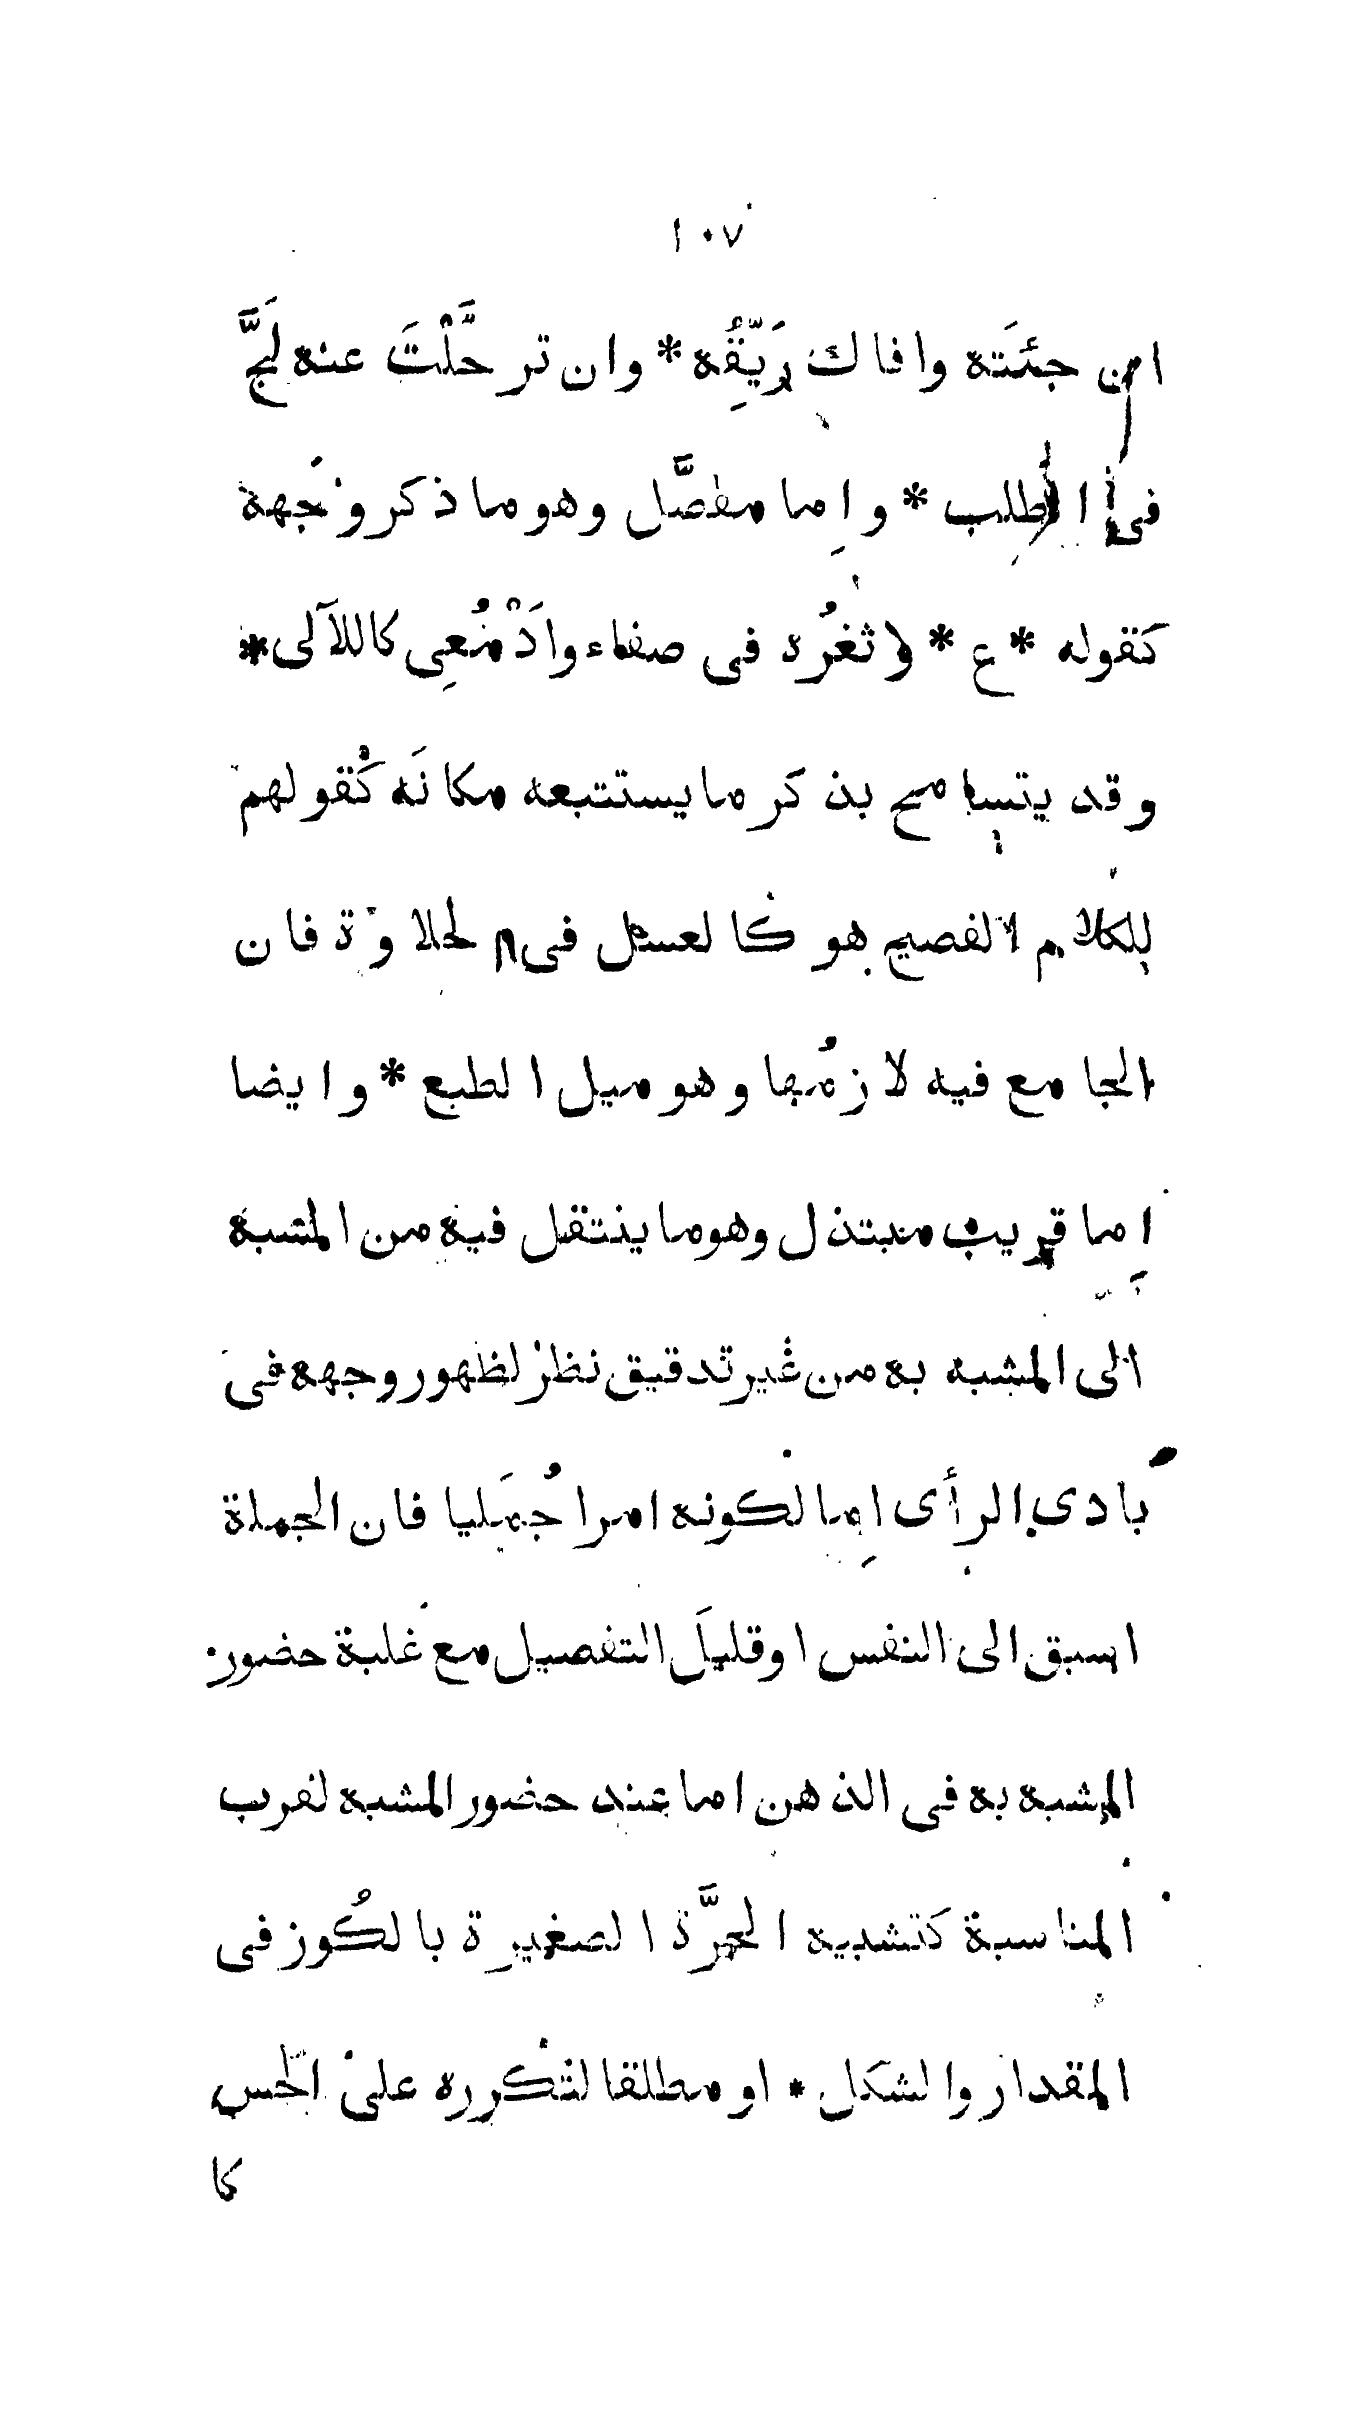 ١٠٧
ان جئتَه وافاك رَيِّقُه * وان ترحَّلْتَ عنه لَجَّ
فى الطلب * واِما مفصَّل وهوما ذكر وجهة
كقوله * ع * وثغرُه فى صفاء وادْمُعِى كاللآلى *
وقد يتسامح بذكر ما يستتبعه مكانَه كقولهم
للكلام الفصيح هو كالعسل فى الحلاوة فان
الجامع فيه لازمُها وهو ميل الطبع * وايضا
اِما قريب مبتذل وهوما ينتقل فيه من المشبه
الى المشبه به من غير تدقيق نظر لظهور وجهه فى
بادى الرأى اِما لكونه امرا جُمَليا فان الجملة
اسبق الى النفس او قليلَ التفصيل مع غلبة حضور
المشبه به فى الذهن اما عند حضور المشبه لقرب
المناسبة كتشبيه الجرَّة الصغيرة بالكُوز فى
المقدار والشكل * او مطلقا لتكرره على الحس
كا